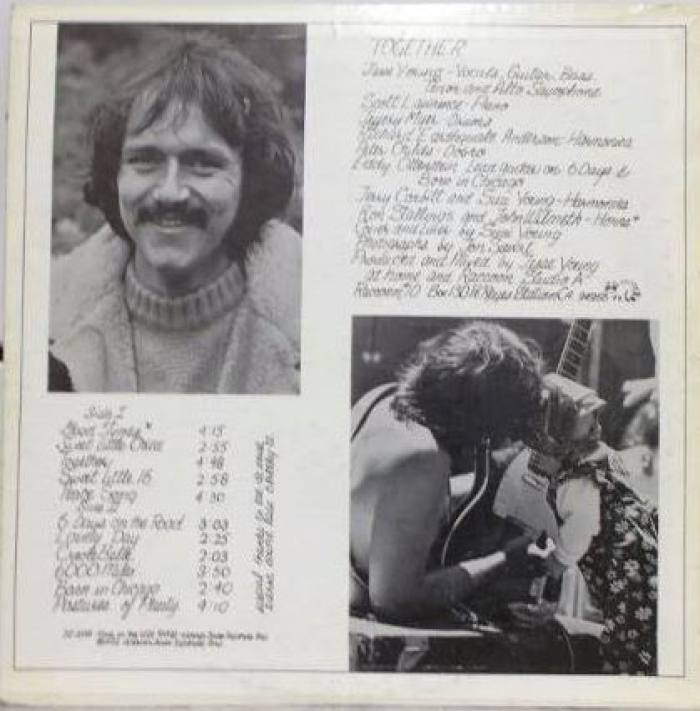 TOGETHER
Jesse Young - Vocals, Guitar, Bass
Tenor and Alto Saxophone
Scott Lawrence - Piano
Jeffery Myer - Drums
Richard Earthquake Anderson - Harmonica
Peter Childs - Dobro
Eddy Ottenstein Lead guitar on 6 Days &
Born in Chicago
Jerry Corbitt and Suzi Young - Harmonies
Ron Stallings and John Wilmeth - Horns*
Cover and Liner by Suzi Young
Photographs by Jon Sievert
Produced and Mixed by Jesse Young
at home and Raccoon Studio A
Raccoon #10 Box 130 Pt Reyes Station CA
Side I
Good Times*
Sweet Little Child
Together
Sweet Little 16
Peace Song
4:15
2:55
4:48
2:58
4:30
Side II
6 Days on the Road
Lovely Day
Creole Belle
6000 Miles
Born in Chicago
Pastures of Plenty
3:03
2:25
2:03
3:50
2:40
4:10